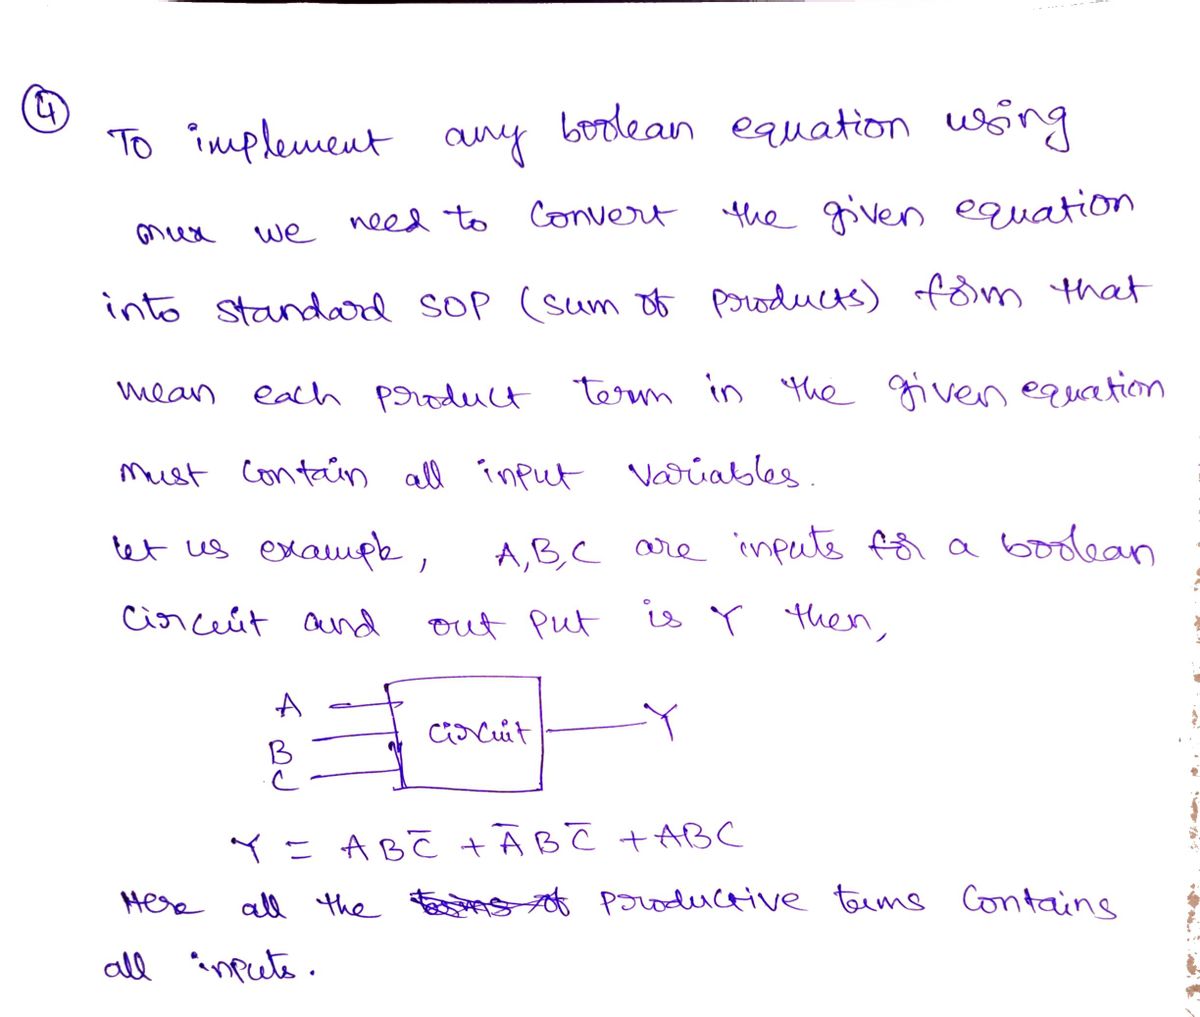 4
To implement any boolean equation using
mux we need to Convert the given equation
into standard SOP (sum of products) form that
mean each product term in the given equation
must contain all input variables.
let us example, A,B,C are inputs for a boolean
Circuit and out put is Y then,
A
B
C
circuit
Y
Y = ABC̅ + A̅BC̅ + ABC
Here all the terms of productive terms Contains
all inputs.